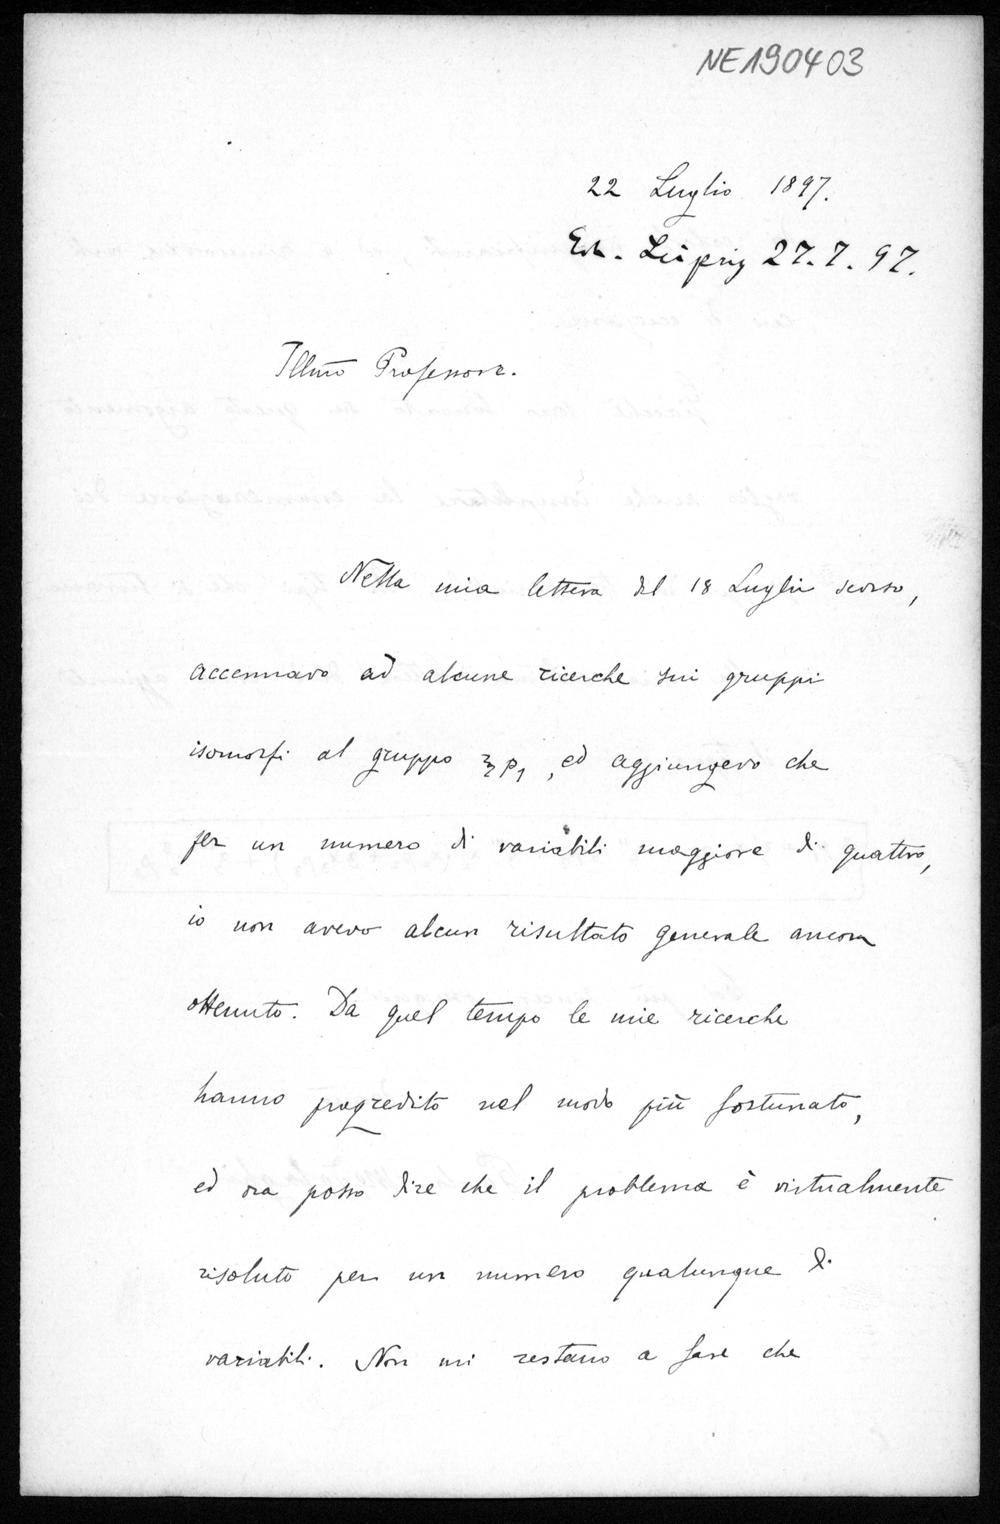 NE190403
22 Luglio 1897.
Erh. Leipzig 27.7.97.
Illmo Professore.
Nella mia lettera del 18 Luglio scorso,
accennavo ad alcune ricerche sui gruppi
isomorfi al gruppo ξ₃p₁, ed aggiungevo che
per un numero di variabili maggiore di quattro,
io non avevo alcun risultato generale ancora
ottenuto. Da quel tempo le mie ricerche
hanno progredito nel modo più fortunato,
ed ora posso dire che il problema è virtualmente
risoluto per un numero qualunque di
variabili. Non mi restano a fare che